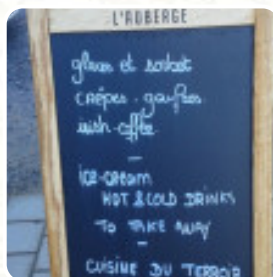 L'AUBERGE
glaces et sorbet
crêpes - gaufres
irish-coffee
ice-cream
HOT & COLD DRINKS
TO TAKE AWAY
CUISINE DU TERROIR